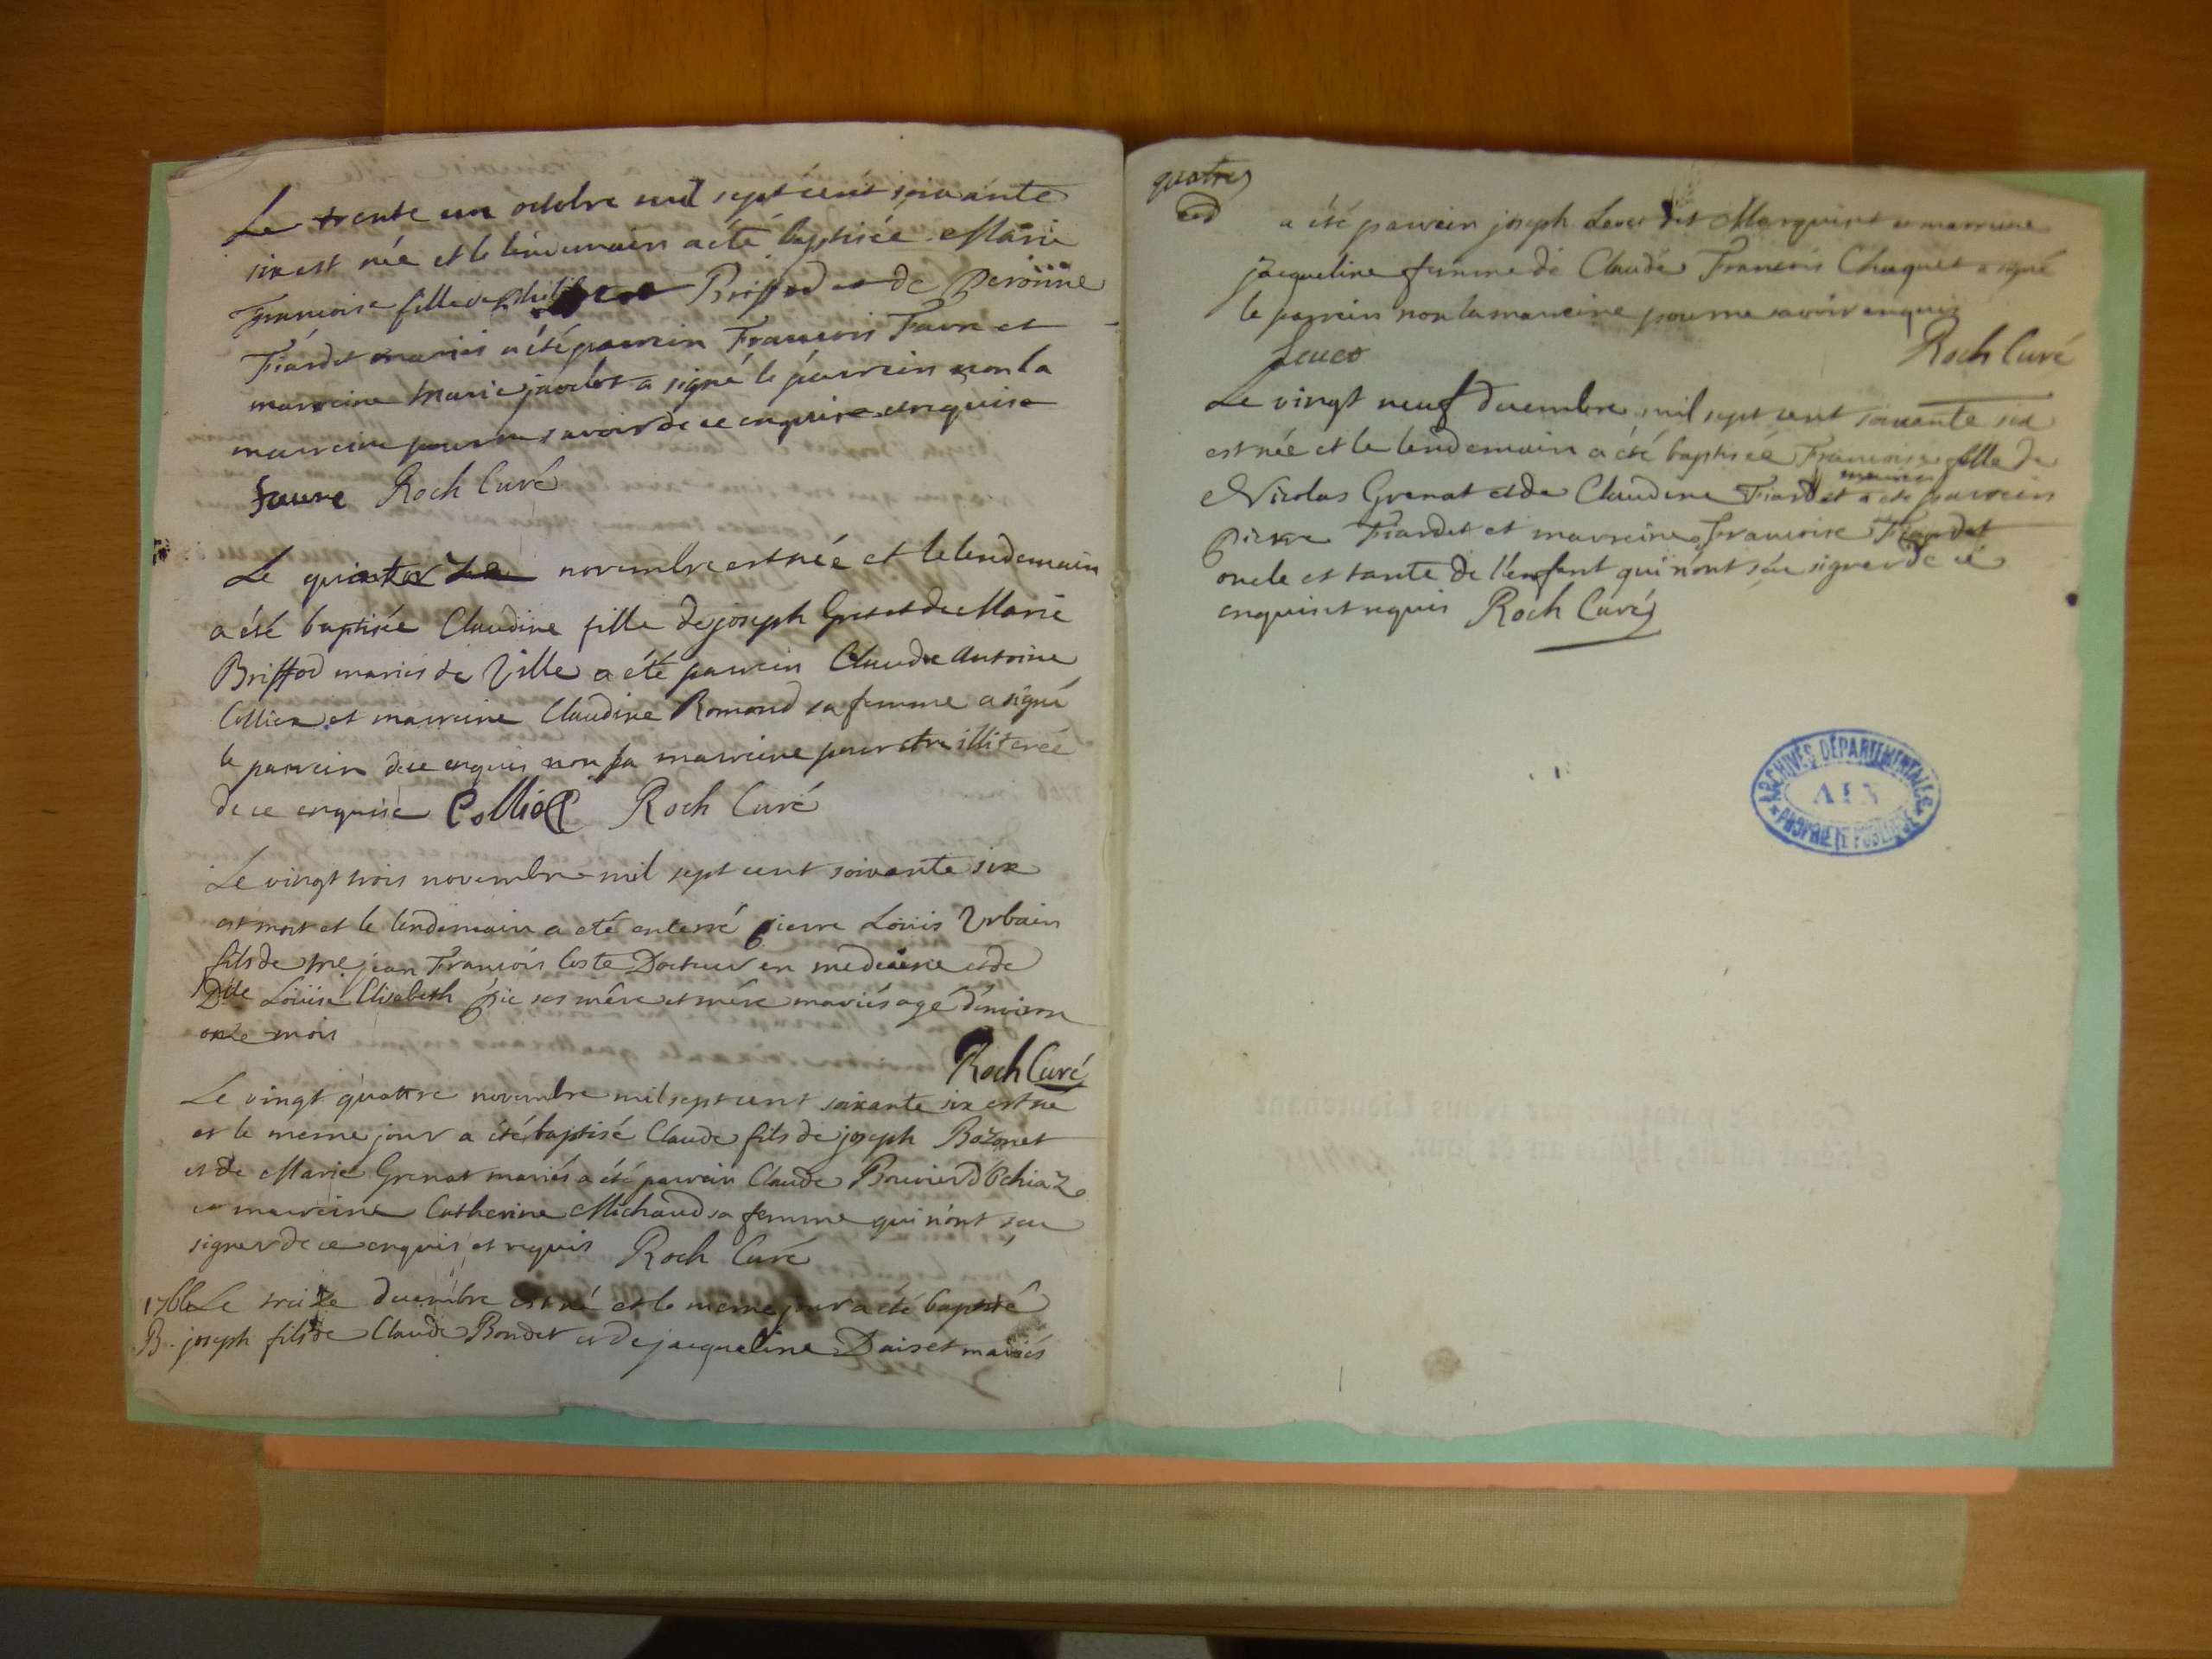 Le trente un octobre mil sept cent soixante
six est née et le lendemain a été baptisée Marie
Francoise fille de Brissod et de Peronne
Fiardet mariés a été parrein François Favre et
marreine marie javelot a signé le parrein non la
marreine pour ne savoir de ce enquise enquise
faure Roch Curé
Le quatorze novembre est née et le lendemain
a été baptisée Claudine fille de joseph et de Marie
Briffod mariés de Ville a été parrein Claude Antoine
Collier et marreine Claudine Romand sa femme a signé
le parrein de ce enquis non la marreine pour etre illiterée
de ce enquise Roch Curé
Le vingt trois novembre mil sept cent soixante six
est mort et le lendemain a eté enterré pierre Louis Urbain
fils de me jean François Coste Docteur en medecine et de
Dlle Loüise Elisabeth pie ses mére et mére mariés agé d'environ
onze mois
Roch Curé
Le vingt quattre novembre mil sept cent soixante six est né
et le meme jour a été baptisé Claude fils de joseph Bozonet
et de Marie Grenat mariés a été parrein Claude Bouvier d'Echiaz
et marreine Catherine Michaud sa femme qui n'ont sçu
signer de ce enquis et requis Roch Curé
1766 Le treize decembre est né et le meme jour a été baptisé
B. joseph fils de Claude Bondet et de jacqueline Daiset mariés
quatre
a été parrein joseph Levet dit Marquint et marreine
jacqueline femme de Claude François Chuquet a signé
le parrein non la mareine pour ne savoir enquis
Roch Curé
Le vingt neuf decembre mil sept cent soixante six
est née et le lendemain a été baptiseé Francoise fille de
Nicolas Grenat et de Claudine Fiardet mariés a été parrein
pierre Fiardet et marreine Francoise Fiardet
oncle et tante de l'enfant qui n'ont sçu signer de ce
enquis et requis Roch Curé
ARCHIVES DÉPARTEMENTALES
AIN
PROPRIÉTÉ PUBLIQUE